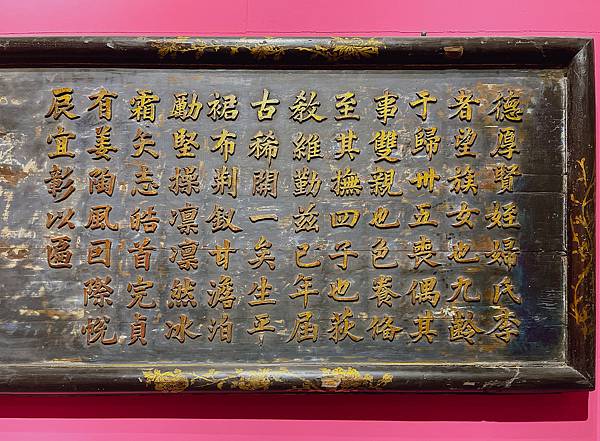 德厚賢姪婦氏李
者望族女也九齡
于歸卅五喪偶其
事雙親也色養俻
至其撫四子也荻
教維勤茲已年屆
古稀開一矣生平
裙布荆釵甘澹泊
勵堅操凛凛然冰
霜矢志皓首完貞
有姜陶風囙際悅
辰宜彰以匾